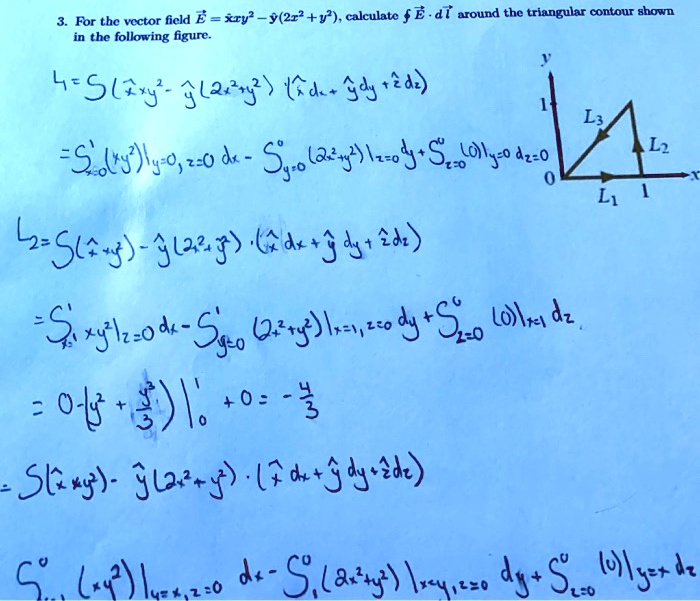 3. For the vector field E⃗ = x̂xy² − ŷ(2x² + y²), calculate ∮ E⃗ · dl⃗ around the triangular contour shown
in the following figure.
L₁ = S(x̂xy² - ŷ(2x²+y²)) (x̂dx + ŷdy + ẑdz)
= S¹ₓ₌₀(xy²)|y=0, z=0 dx - S⁰y=0 (2x²+y²)|z=0 dy + S⁰z=0 (0)|y=0 dz=0
y
1
L3
L2
0
L1
1
x
L₂ = S(x̂xy²) - ŷ(2x²+y²) · (x̂dx + ŷdy + ẑdz)
= S¹ₓ₌₁ xy²|z=0 dx - S¹y=0 (2x²+y²)|x=1, z=0 dy + S⁰z=0 (0)|x=1 dz
= 0-(y² + y³/3)|¹₀ + 0 = - 4/3
= S(x̂xy²) - ŷ(2x²+y²) · (x̂dx + ŷdy + ẑdz)
S⁰ (xy²)|y=x, z=0 dx - S⁰₁ (2x²+y²)|x=y, z=0 dy + S⁰z=0 (0)|y=x dz